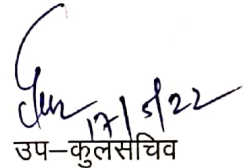 17/5/22
उप–कुलसचिव